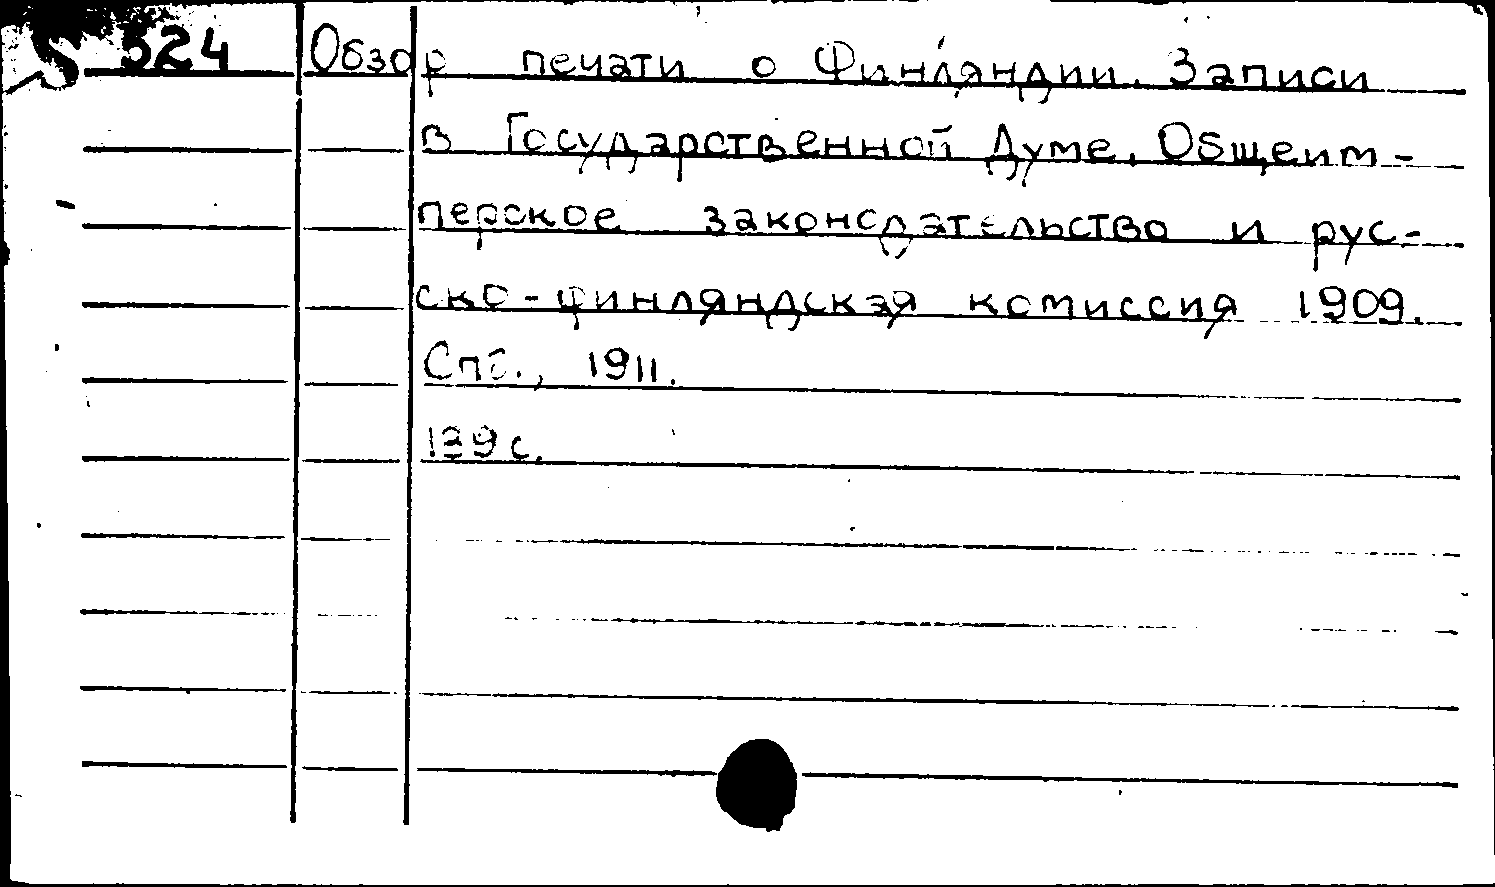 524 Обзор печати о Финляндии. Записи
в Государственной Думе. Общеим-
перское законодательство и рус-
ско-финляндская комиссия 1909.
Спб., 1911.
139 с.